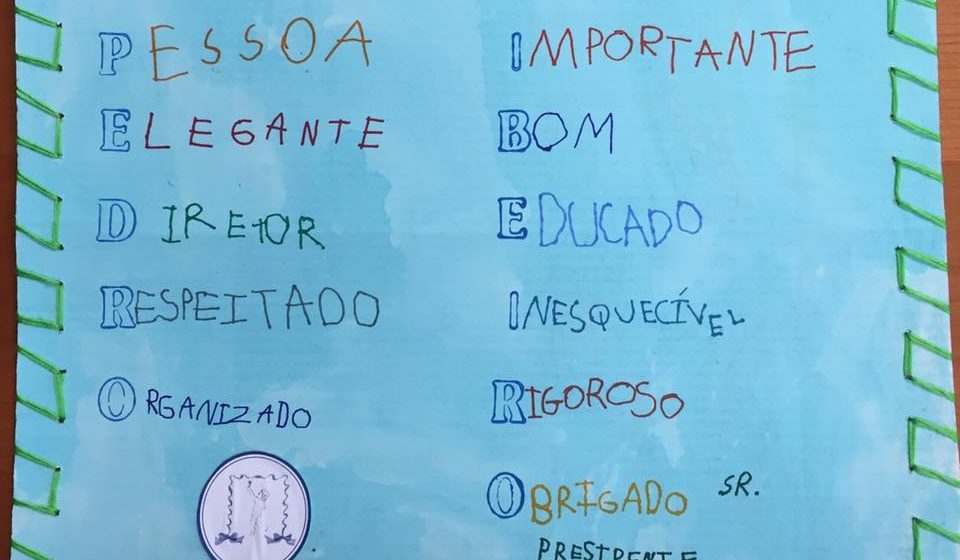 PESSOA
ELEGANTE
DIRETOR
RESPEITADO
ORGANIZADO
IMPORTANTE
BOM
EDUCADO
INESQUECÍVEL
RIGOROSO
OBRIGADO SR.
PRESIDENTE